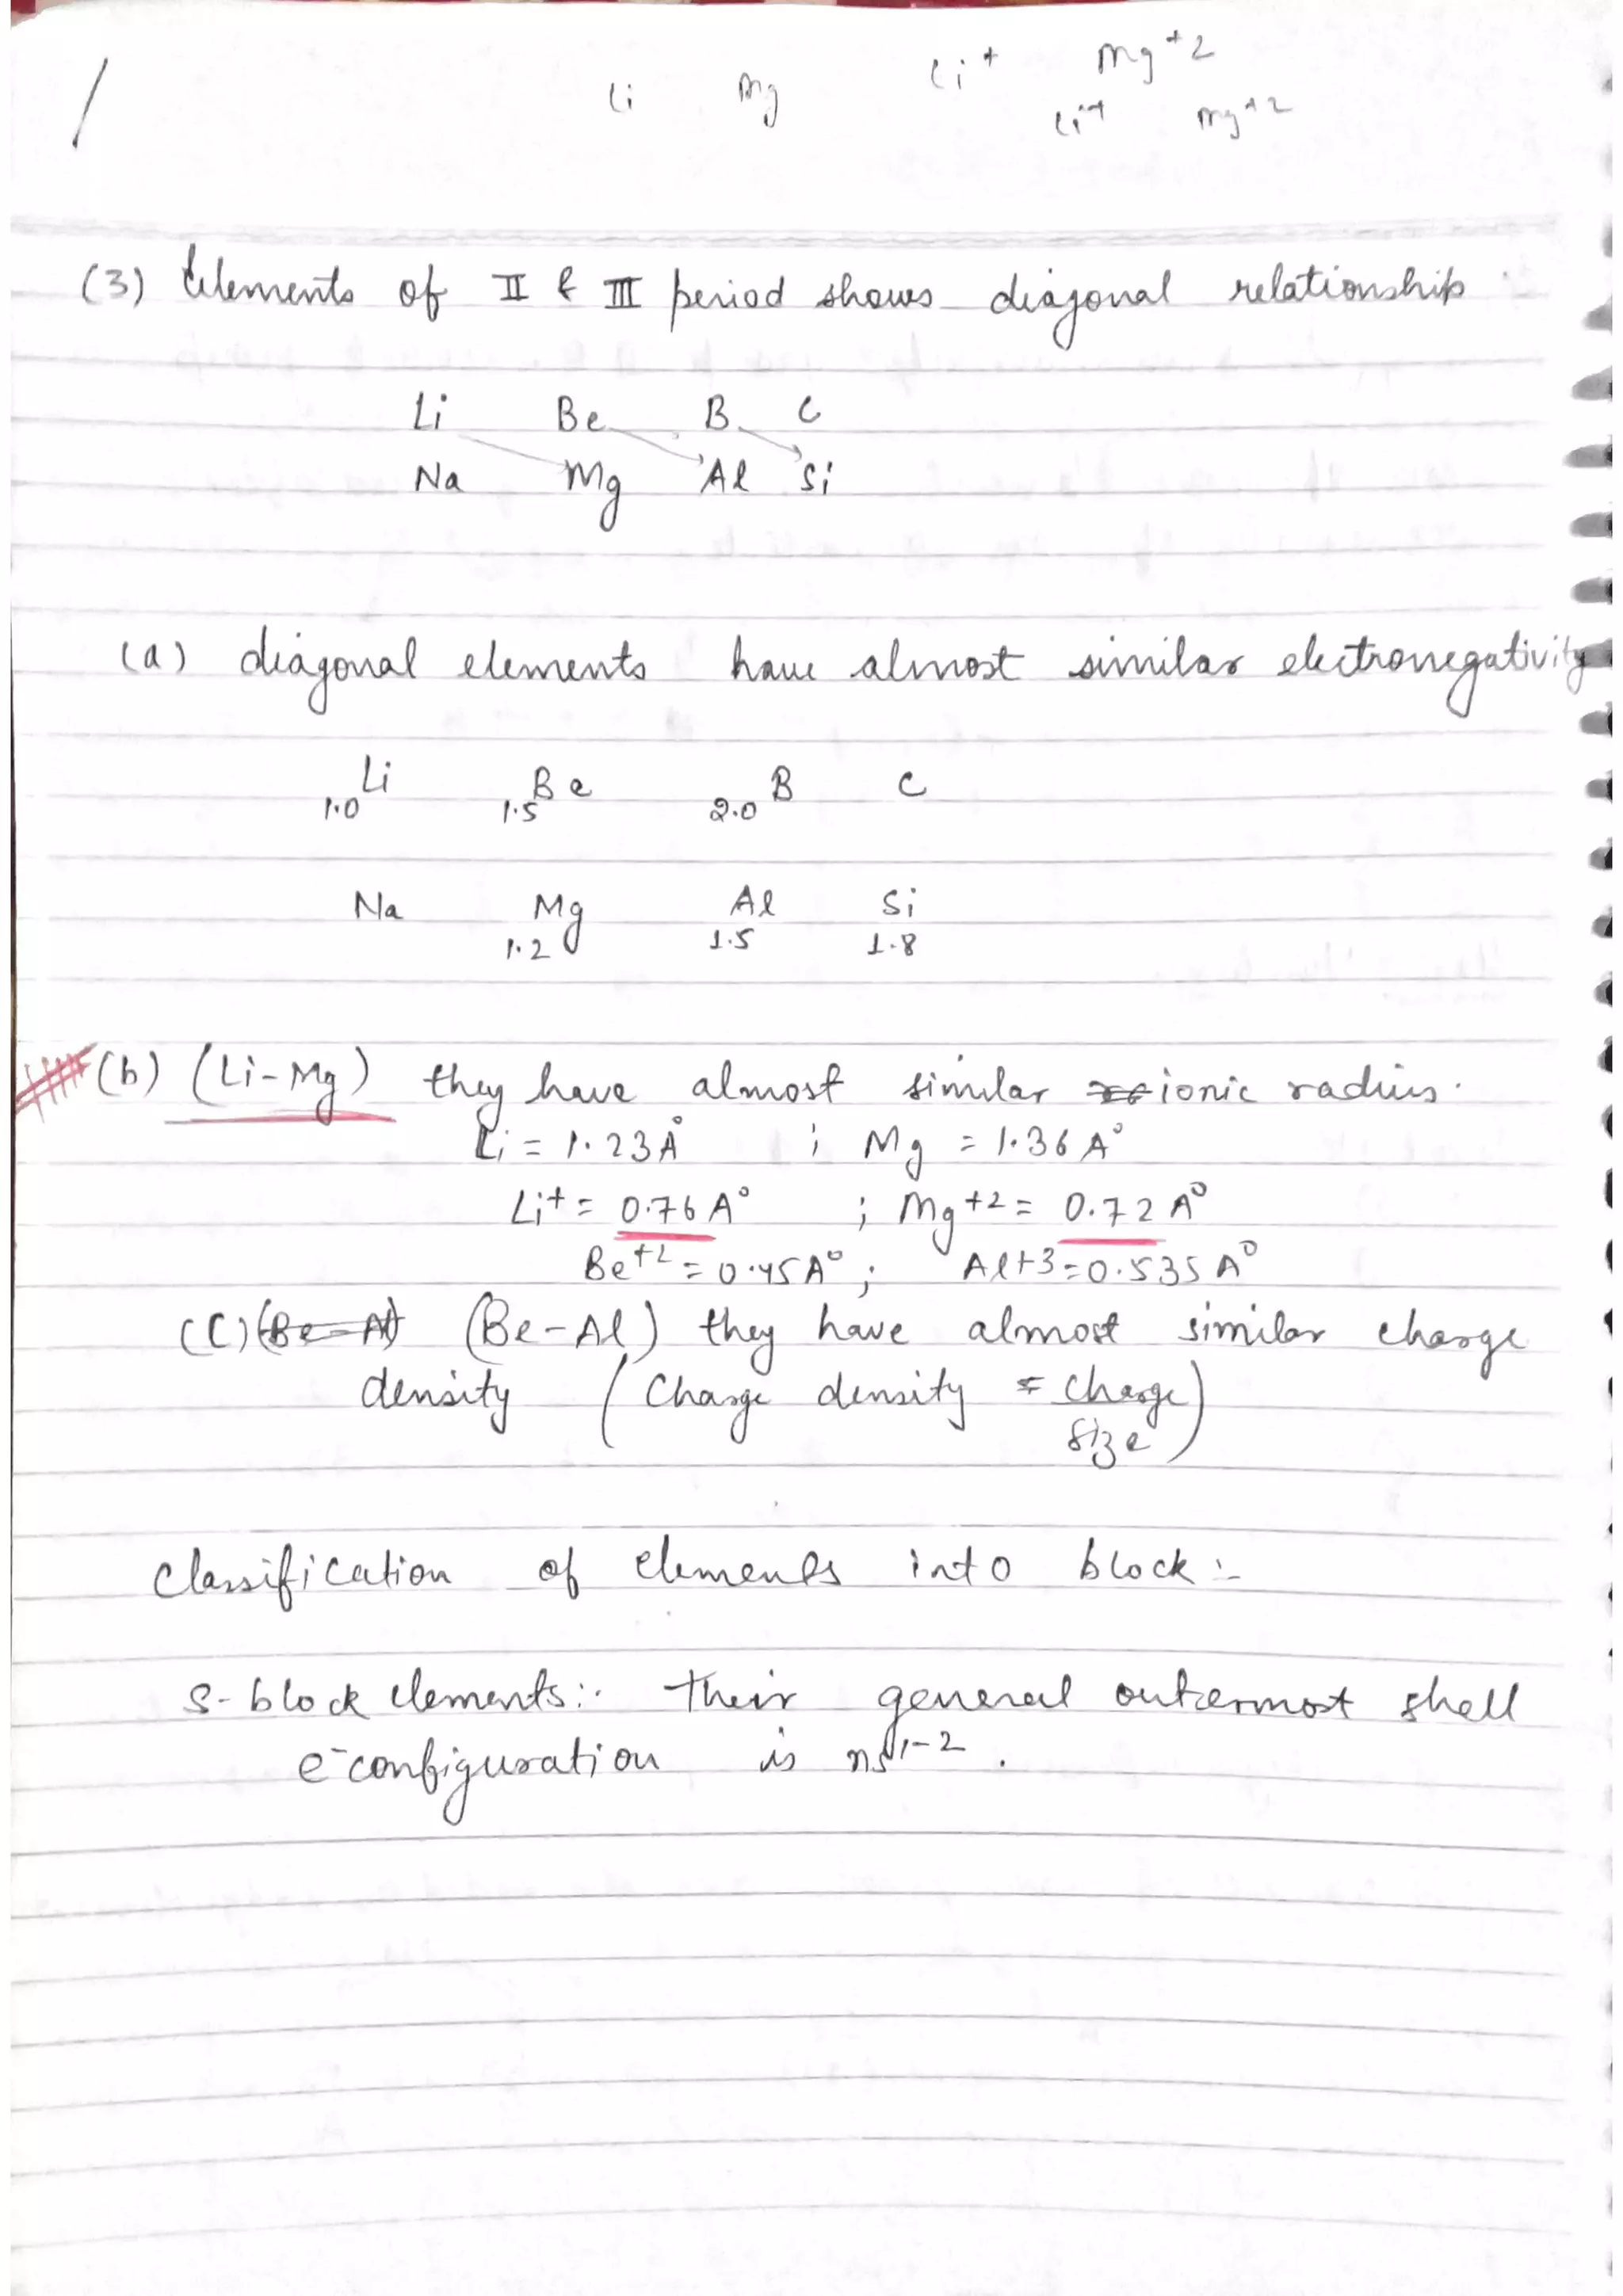 Li Mg Li+ Mg+2
Li+ Mg+2
(3) Elements of II & III period shows diagonal relationship
Li Be B C
Na Mg Al Si
(a) diagonal elements have almost similar electronegativity
Li Be B C
1.0 1.5 2.0
Na Mg Al Si
1.2 1.5 1.8
(b) (Li-Mg) they have almost similar ionic radius.
Li = 1.23 A° ; Mg = 1.36 A°
Li+ = 0.76 A° ; Mg+2 = 0.72 A°
Be+2 = 0.45 A° ; Al+3 = 0.535 A°
(C) (Be-Al) (Be-Al) they have almost similar charge
density (Charge density = charge
size)
Classification of elements into block :-
S-block elements :- Their general outermost shell
e- configuration is ns1-2 .